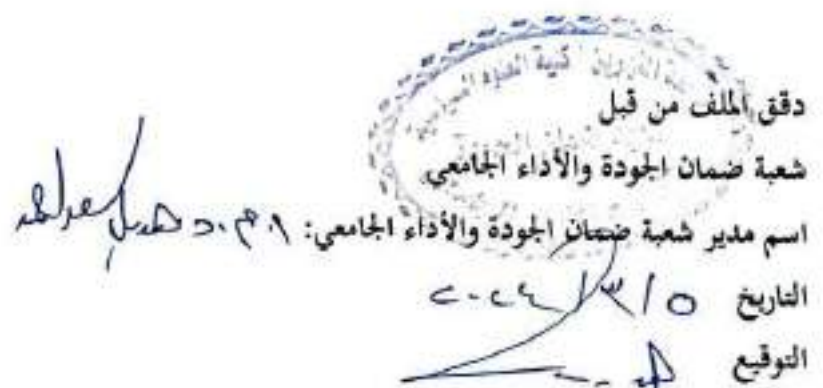 دقق الملف من قبل
شعبة ضمان الجودة والأداء الجامعي
اسم مدير شعبة ضمان الجودة والأداء الجامعي: ا.م.د هديل
التاريخ ٥ / ٣ / ٢٠٢٤
التوقيع